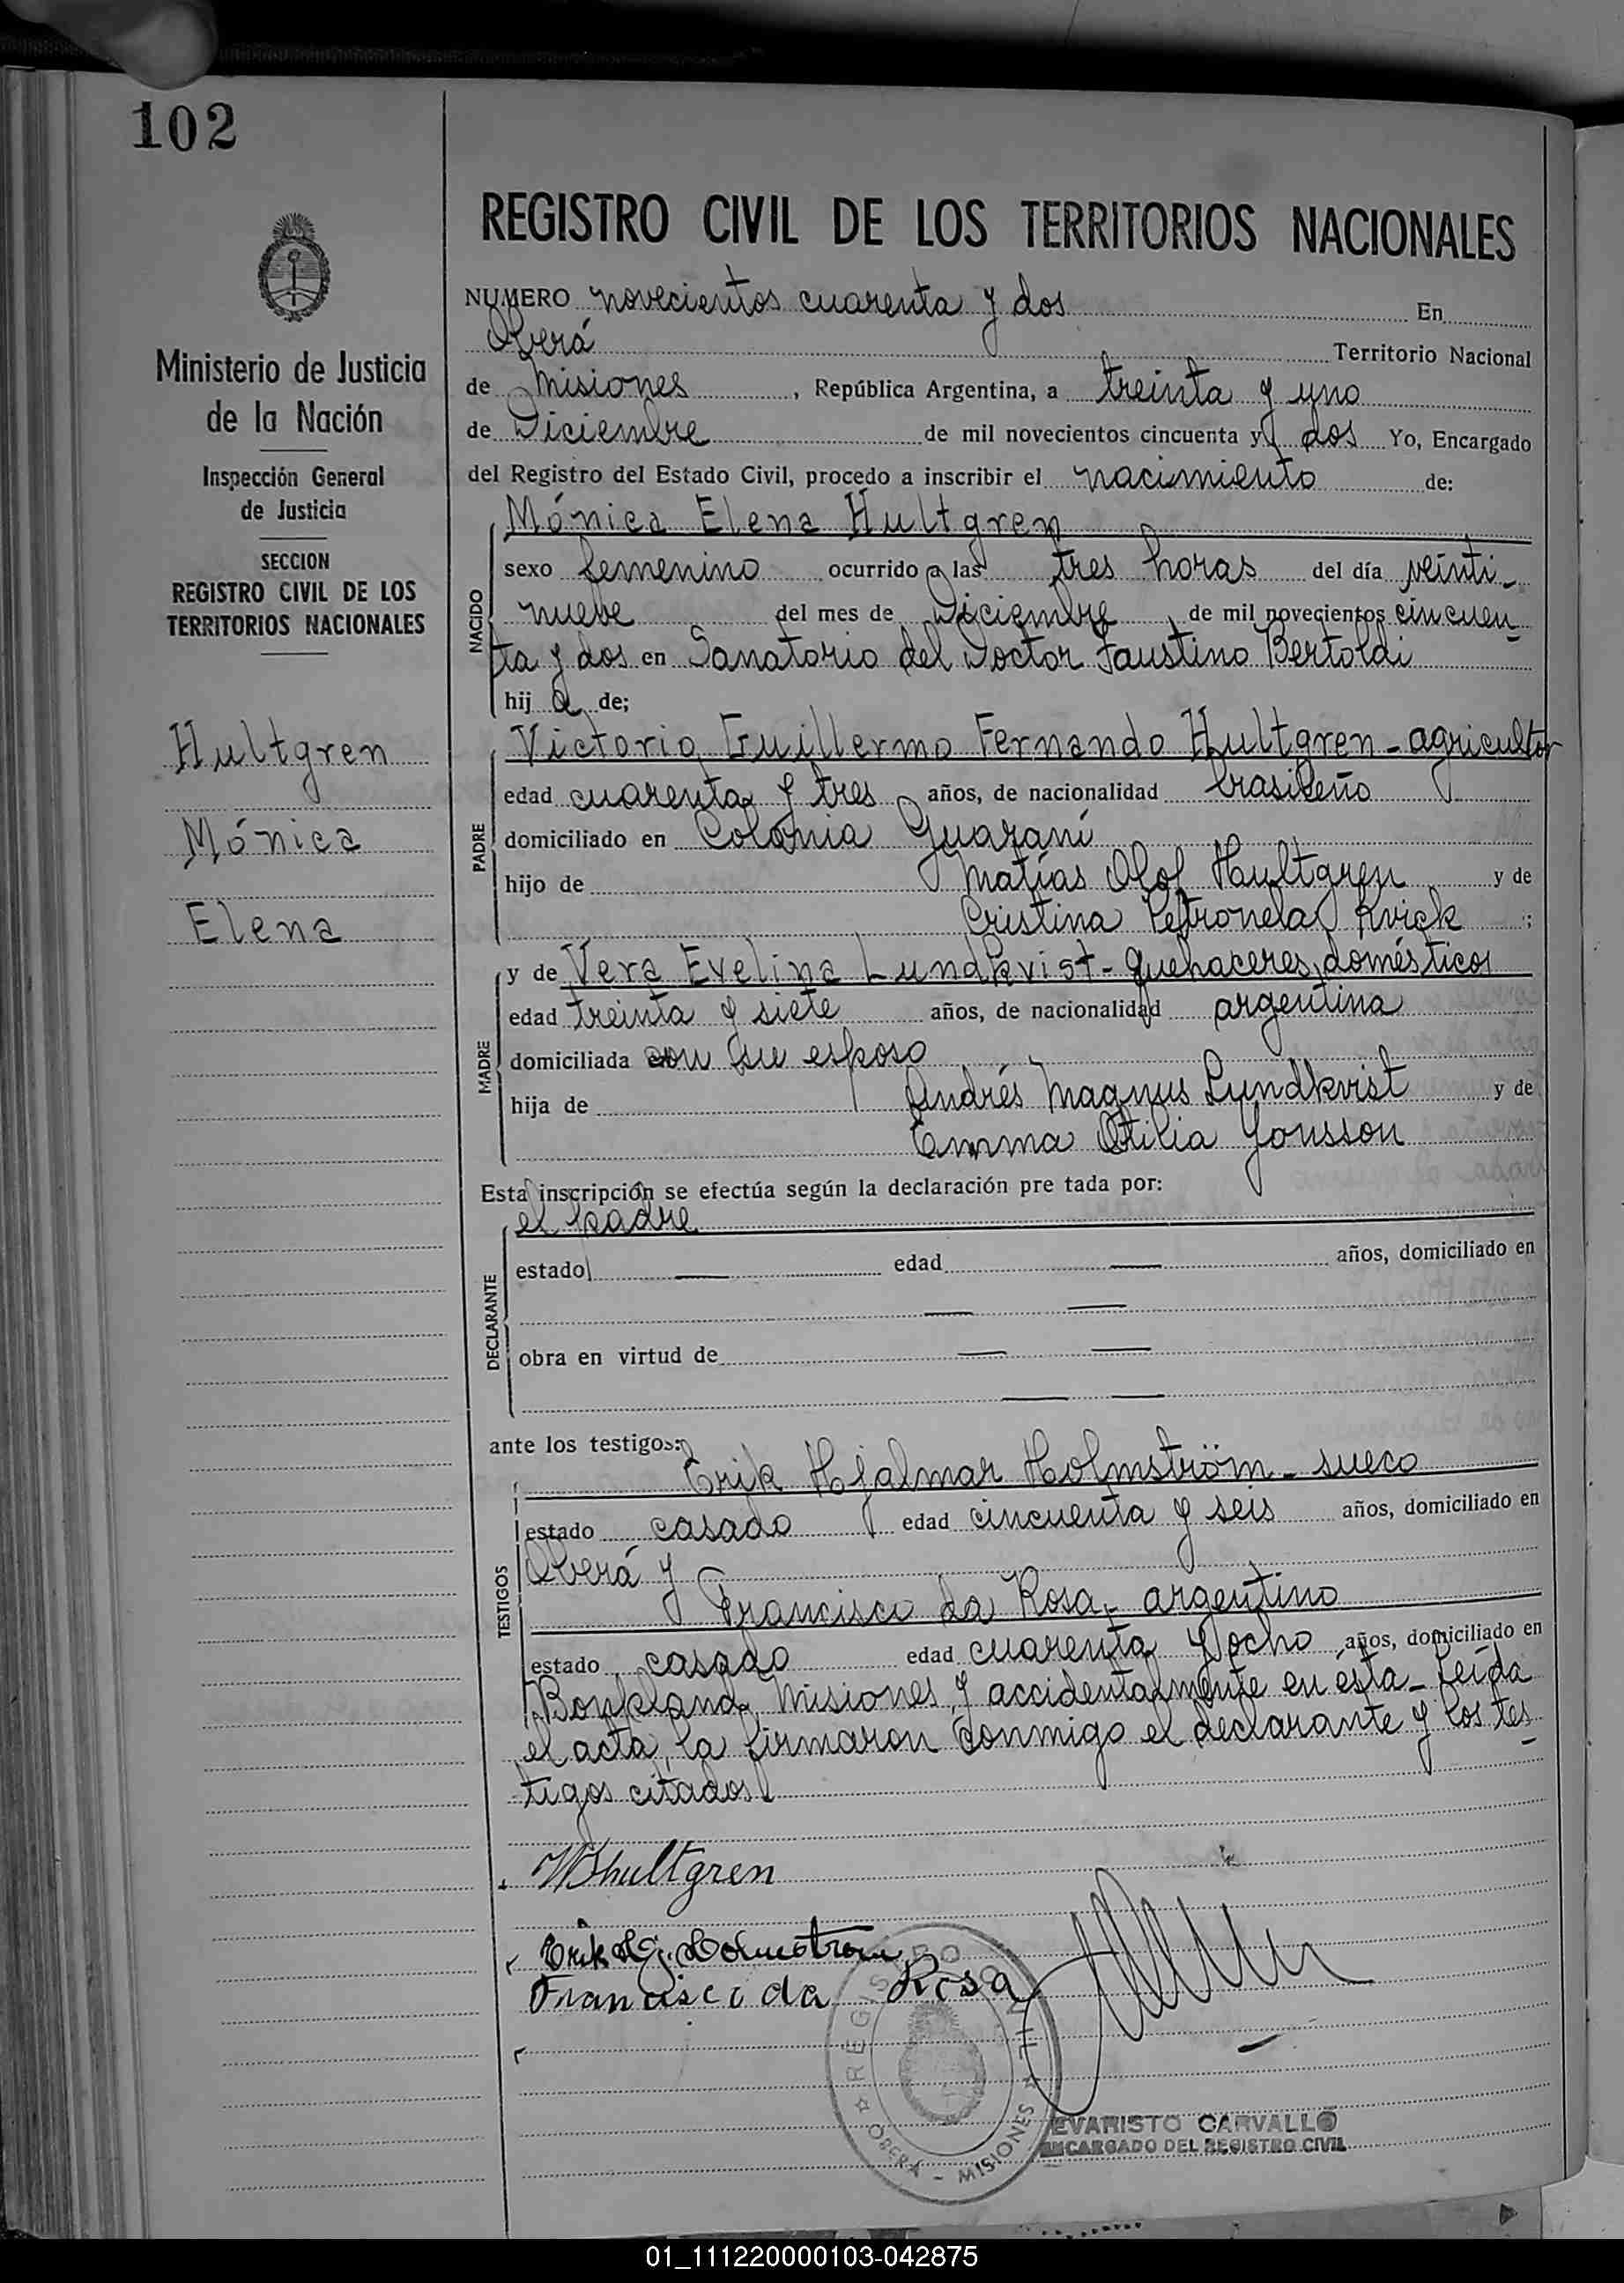 102
REGISTRO CIVIL DE LOS TERRITORIOS NACIONALES
Ministerio de Justicia
de la Nación
Inspección General
de Justicia
SECCION
REGISTRO CIVIL DE LOS
TERRITORIOS NACIONALES
Hultgren
Mónica
Elena
NUMERO novecientos cuarenta y dos En
Oberá Territorio Nacional
de Misiones, República Argentina, a treinta y uno
de Diciembre de mil novecientos cincuenta y dos Yo, Encargado
del Registro del Estado Civil, procedo a inscribir el nacimiento de:
NACIDO
Mónica Elena Hultgren
sexo femenino ocurrido a las tres horas del día veinti-
nueve del mes de Diciembre de mil novecientos cincuen-
ta y dos en Sanatorio del Doctor Faustino Bertoldi
hij a de;
PADRE
Victorio Guillermo Fernando Hultgren - agricultor
edad cuarenta y tres años, de nacionalidad brasileño
domiciliado en Colonia Guaraní
hijo de Matías Olof Hultgren y de
Cristina Petronela Kvick ;
MADRE
y de Vera Evelina Lundkvist - quehaceres domésticos
edad treinta y siete años, de nacionalidad argentina
domiciliada con su esposo
hija de Andrés Magnus Lundkvist y de
Emma Otilia Jonsson
Esta inscripción se efectúa según la declaración pre tada por:
DECLARANTE
el padre
estado — edad — años, domiciliado en
— —
obra en virtud de — —
— —
ante los testigos:
TESTIGOS
Erik Hjalmar Holmström - sueco
estado casado edad cincuenta y seis años, domiciliado en
Oberá y
Francisco da Rosa - argentino
estado casado edad cuarenta y ocho años, domiciliado en
Bonpland, Misiones, y accidentalmente en ésta - Leída
el acta, la firmaron conmigo el declarante y los tes-
tigos citados.
Hultgren
Erik Hj. Holmström
Francisco da Rosa
REGISTRO CIVIL
OBERÁ - MISIONES
EVARISTO CARVALLO
ENCARGADO DEL REGISTRO CIVIL
01_111220000103-042875